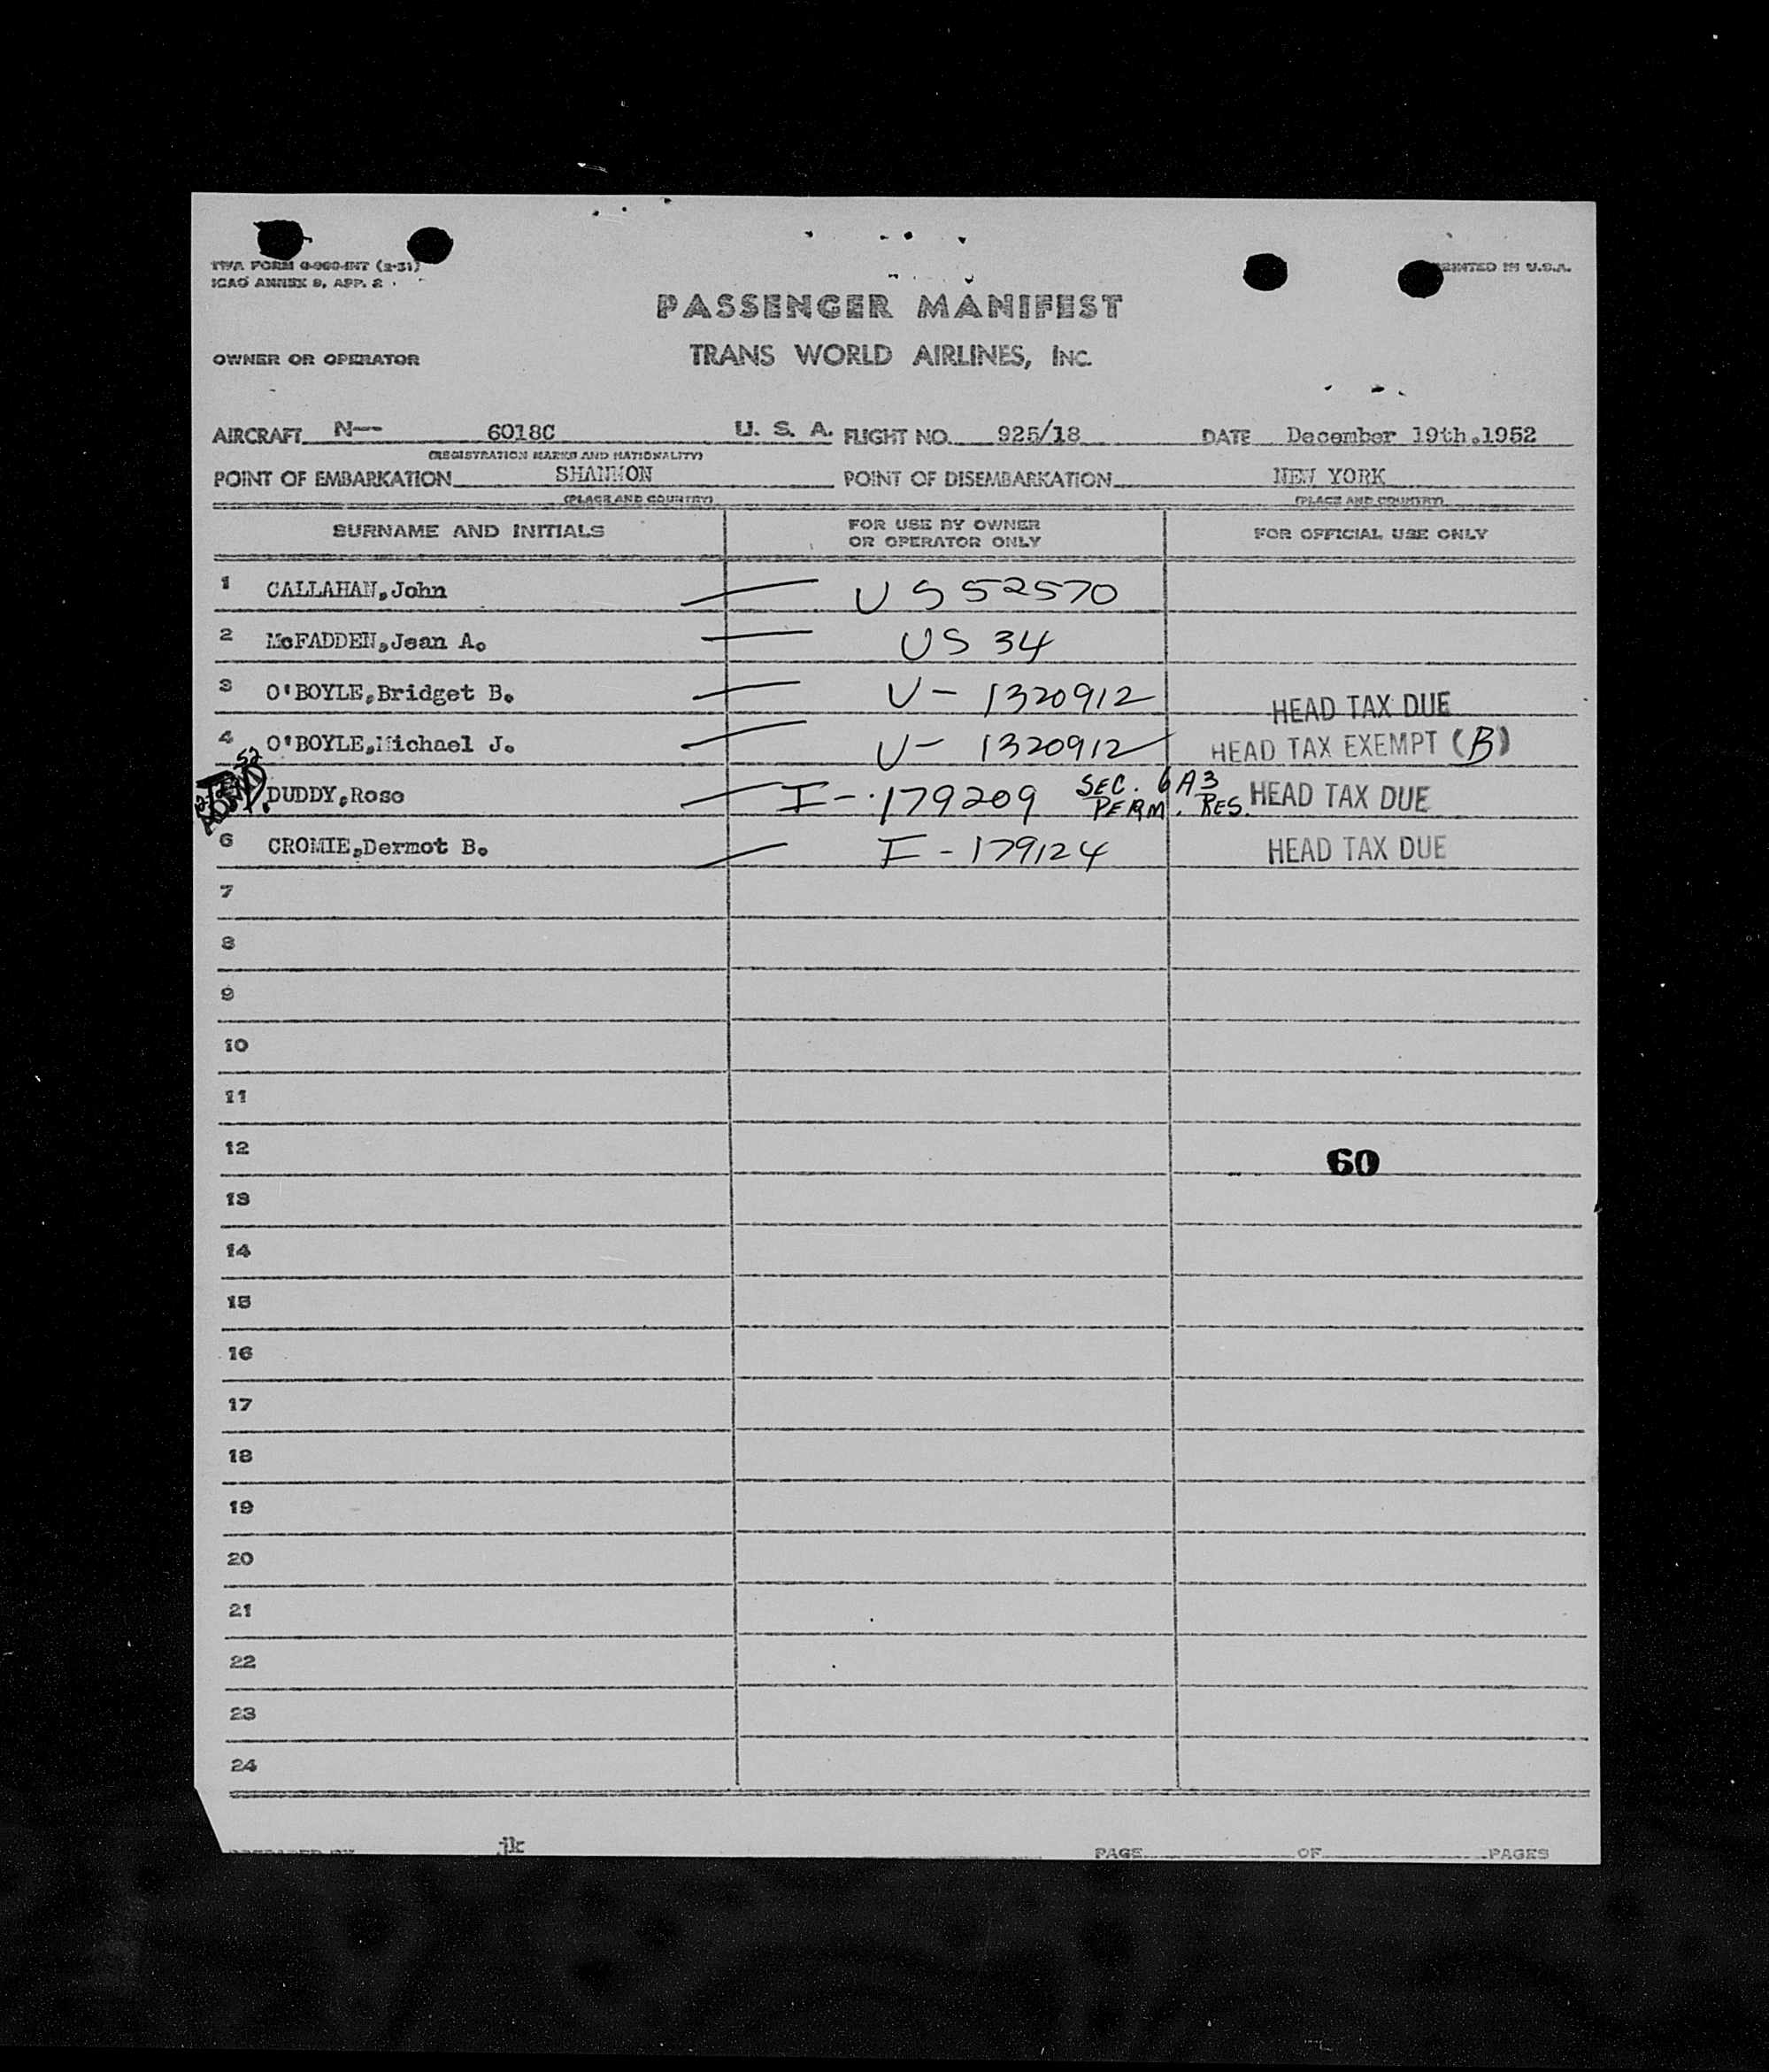 ICAO ANNEX 9, APP. 2
PRINTED IN U.S.A.
PASSENGER MANIFEST
OWNER OR OPERATOR TRANS WORLD AIRLINES, INC.
AIRCRAFT N-- 6018C U. S. A. FLIGHT NO. 925/18 DATE December 19th.1952
(REGISTRATION MARKS AND NATIONALITY)
POINT OF EMBARKATION SHANNON POINT OF DISEMBARKATION NEW YORK
(PLACE AND COUNTRY) (PLACE AND COUNTRY)
SURNAME AND INITIALS FOR USE BY OWNER OR OPERATOR ONLY FOR OFFICIAL USE ONLY
1 CALLAHAN,John — US 52570
2 McFADDEN,Jean A. — US 34
3 O'BOYLE,Bridget B. — V- 1320912 HEAD TAX DUE
4 O'BOYLE,Michael J. — V- 1320912 HEAD TAX EXEMPT (B)
DUDDY,Rose — I-179209 SEC. 6A3 PERM. RES. HEAD TAX DUE
6 CROMIE,Dermot B. — I-179124 HEAD TAX DUE
7
8
9
10
11
12 60
13
14
15
16
17
18
19
20
21
22
23
24
jk PAGE OF PAGES